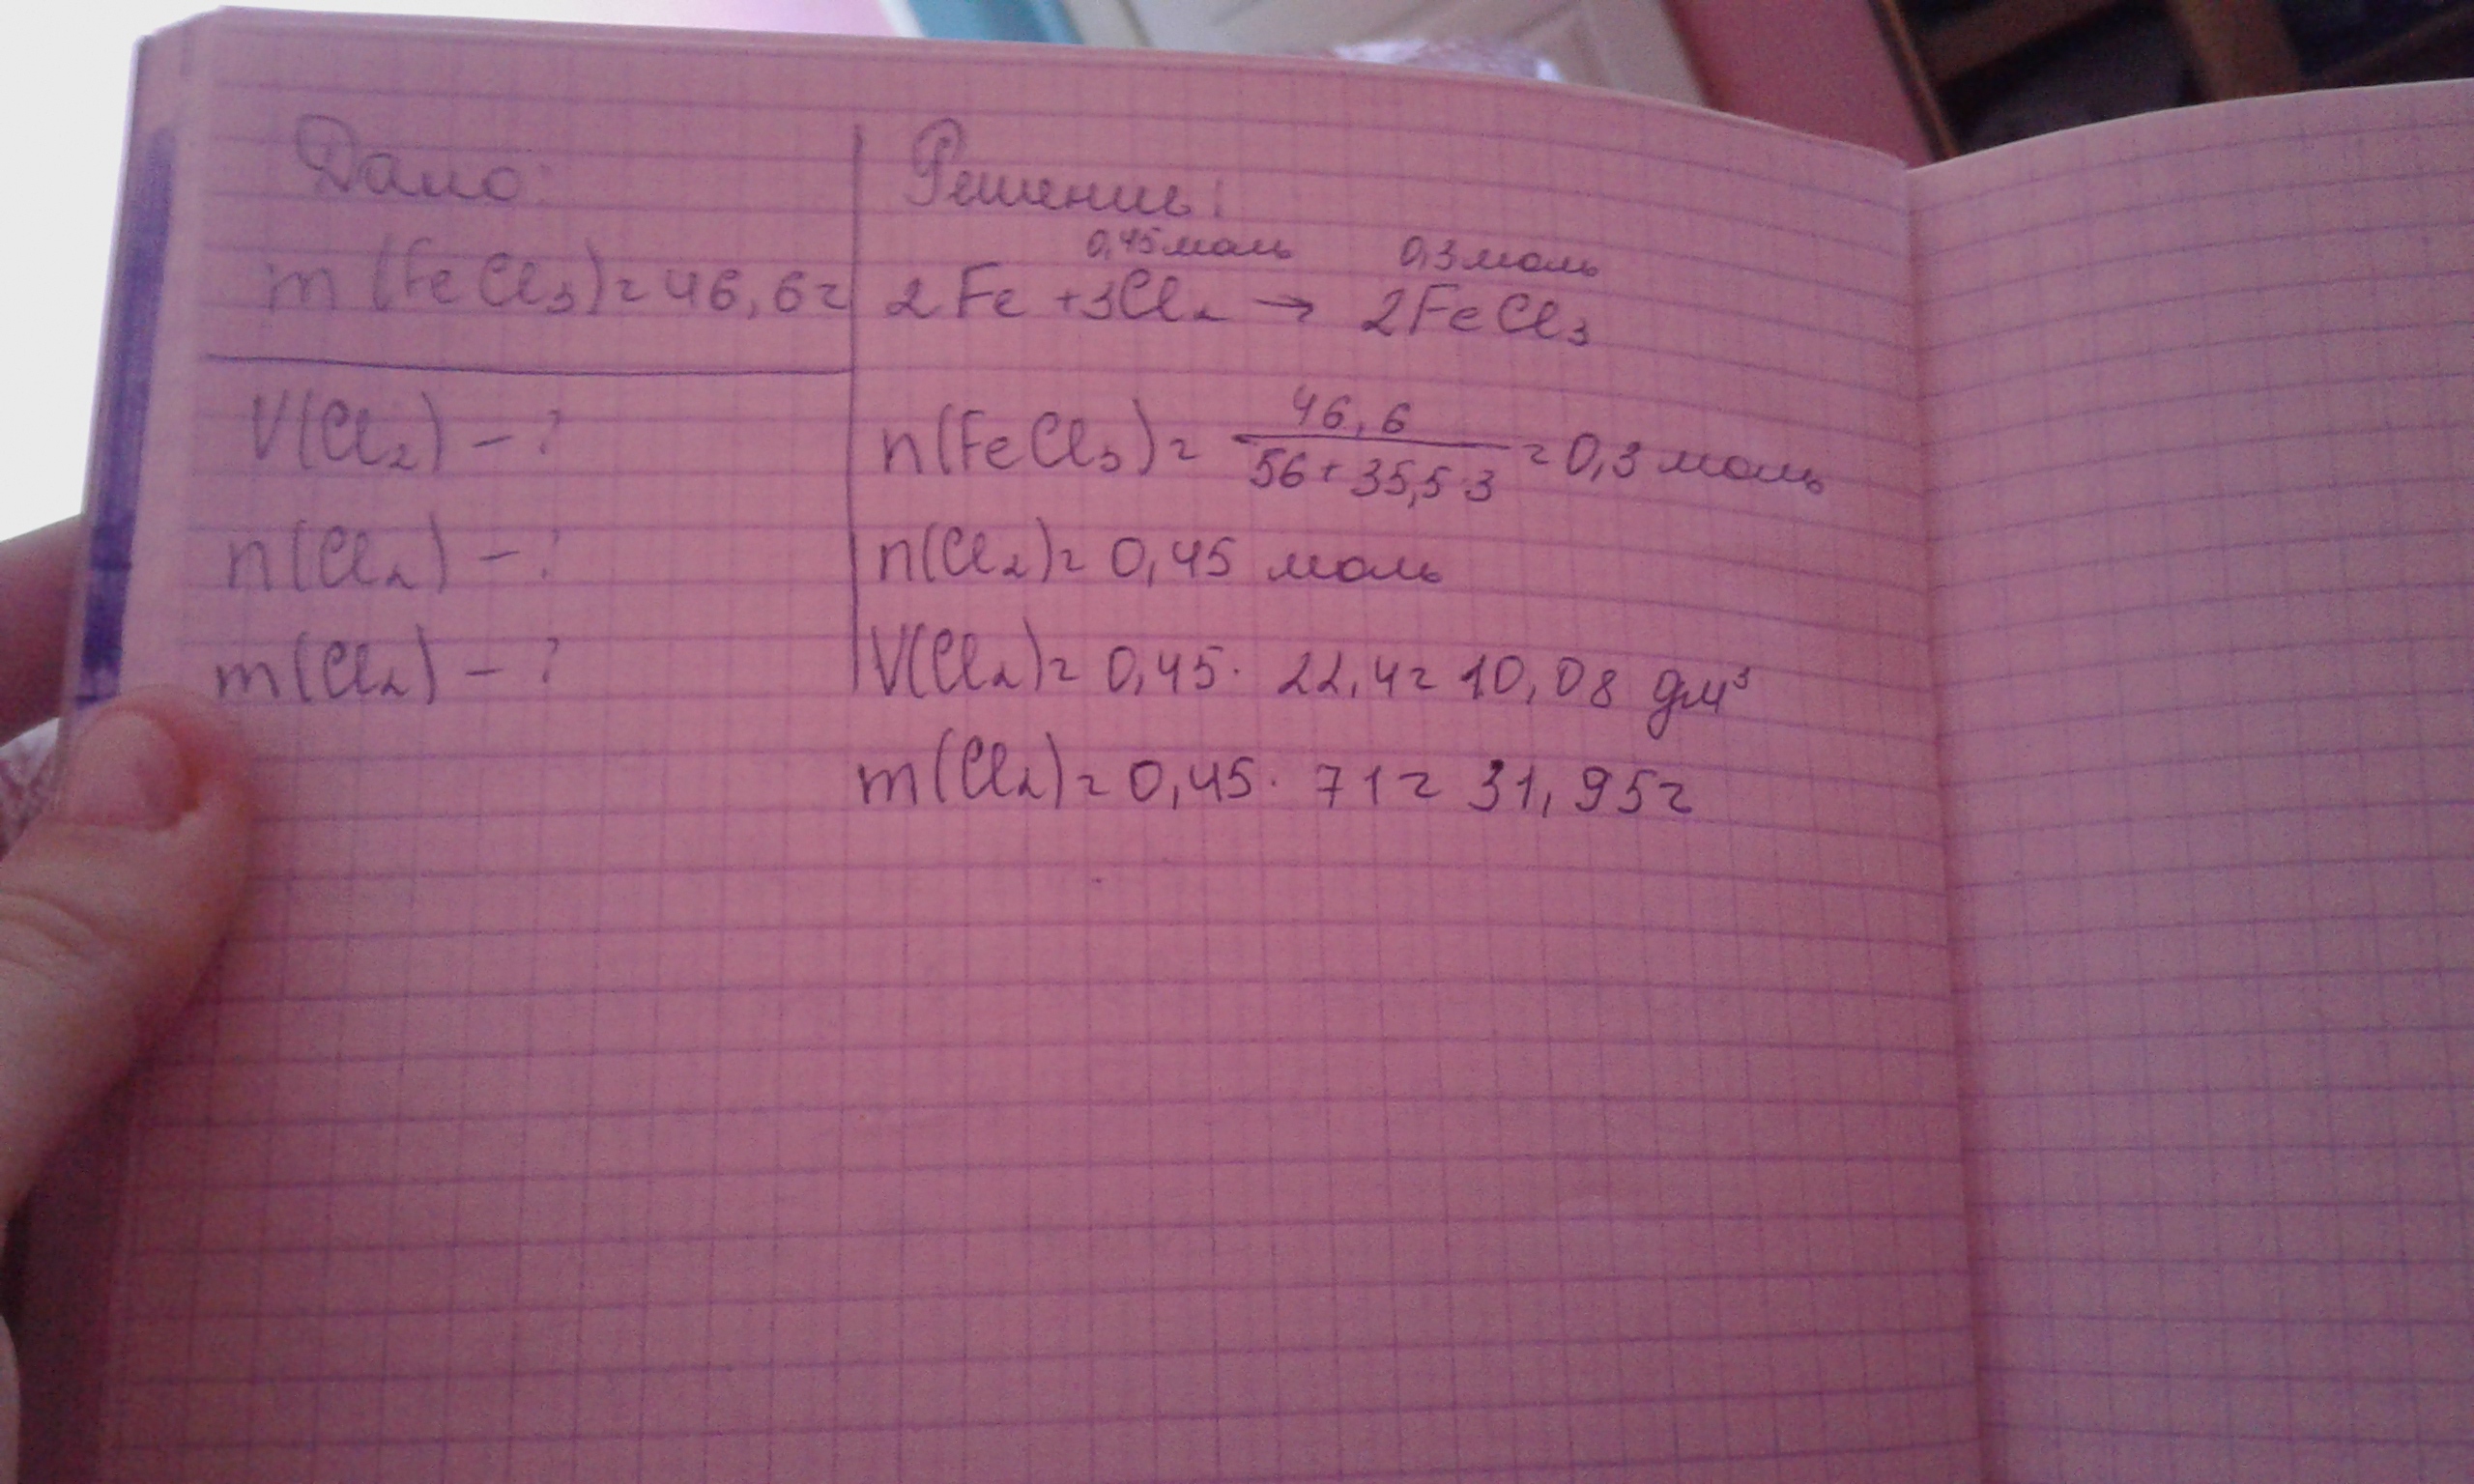 Дано:
m(FeCl₃)=46,6г
V(Cl₂) – ?
n(Cl₂) – ?
m(Cl₂) – ?
Решение:
0,45моль 0,3моль
2Fe +3Cl₂ → 2FeCl₃
n(FeCl₃)= 46,6 / 56+35,5·3 = 0,3 моль
n(Cl₂)= 0,45 моль
V(Cl₂)= 0,45· 22,4= 10,08 дм³
m(Cl₂)= 0,45· 71= 31,95г